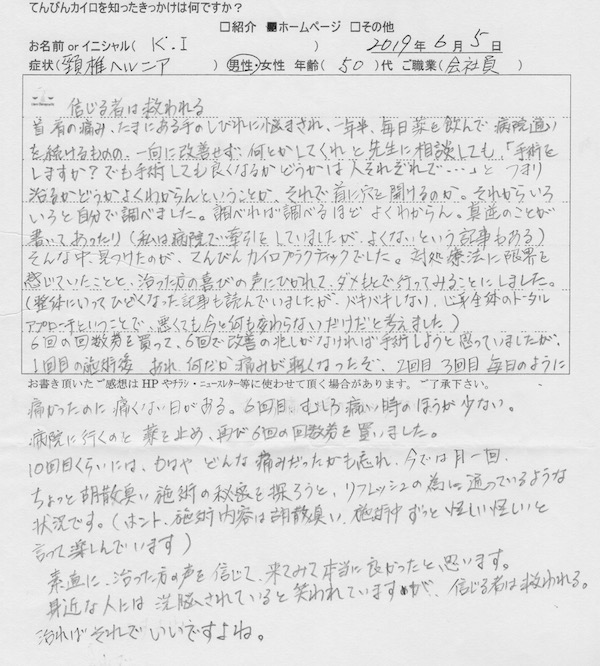 てんびんカイロを知ったきっかけは何ですか？
□紹介 ■ホームページ □その他
お名前 or イニシャル( K.I ) 2019年 6月 5日
症状( 頸椎ヘルニア ) 男性・女性 年齢( 50 )代 ご職業( 会社員 )
信じる者は救われる
首肩の痛み、たまにある手のしびれに悩まされ、一年半、毎日薬を飲んで病院通い
を続けるものの、一向に改善せず、何とかしてくれと先生に相談しても、「手術を
しますか？でも手術しても良くなるかどうかは人それぞれで・・・・」と つまり
治るかどうかよくわからんということか、それで首に穴を開けるのか。それからいろ
いろと自分で調べました。調べれば調べるほど よくわからん。真逆のことが
書いてあったり(私は病院で牽引をしていましたが、よくないという記事もある)
そんな中、見つけたのが、てんびんカイロプラクティックでした。対処療法に限界を
感じていたことと、治った方の喜びの声にひかれて、ダメもとで行ってみることにしました。
(整体にいってひどくなった記事も読んでいましたが、バキバキしない、心身全体のトータル
アプローチということで、悪くても今と何も変わらないだけだと考えました)
6回の回数券を買って、6回で改善の兆しがなければ手術しようと思っていましたが、
1回目の施術後 あれ、何だか痛みが軽くなったぞ、2回目 3回目 毎日のように
お書き頂いたご感想は HP やチラシ・ニュースレター等に使わせて頂く場合があります。ご了承下さい。
痛かったのに痛くない日がある。6回目、むしろ痛い時のほうが少ない。
病院に行くのと薬を止め、再び6回の回数券を買いました。
10回目くらいには、もはや どんな痛みだったかも忘れ、今では月一回、
ちょっと胡散臭い施術の秘密を探ろうと、リフレッシュの為に通っているような
状況です。(ホント、施術内容は胡散臭い、施術中ずっと怪しい怪しいと
言って楽しんでいます)
素直に、治った方の声を信じて、来てみて本当に良かったと思います。
身近な人には洗脳されていると笑われていますが、信じる者は救われる。
治ればそれでいいですよね。